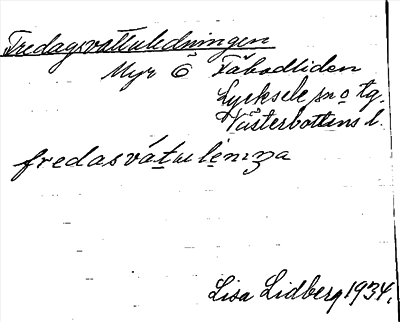 Fredagsvattuledningen
Myr Ö Fäbodliden
Lycksele sn o tg.
Västerbottens l.
fredasvátuleniŋa
Lisa Lidberg 1934.